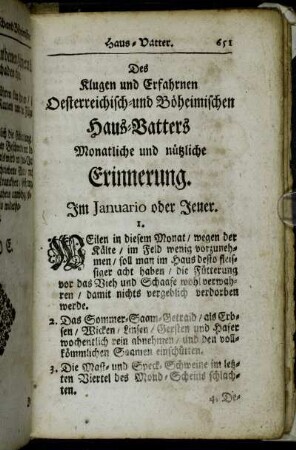 Haus-Vatter. 651
Des
Klugen und Erfahrnen
Oesterreichisch- und Böheimischen
Haus-Vatters
Monatliche und nützliche
Erinnerung.
Im Januario oder Jener.
1.
WEilen in diesem Monat / wegen der
Kälte / im Feld wenig vorzuneh-
men / soll man im Haus desto fleis-
siger acht haben / die Fütterung
vor das Vieh und Schaafe wohl verwah-
ren / damit nichts vergeblich verdorben
werde.
2. Das Sommer-Saam-Getraid / als Erb-
sen / Wicken / Linsen / Gersten und Haber
wochentlich rein abnehmen / und den voll-
kömmlichen Saamen einschütten.
3. Die Mast- und Speck-Schweine im letz-
ten Viertel des Mond-Scheins schlach-
ten.
4. De-